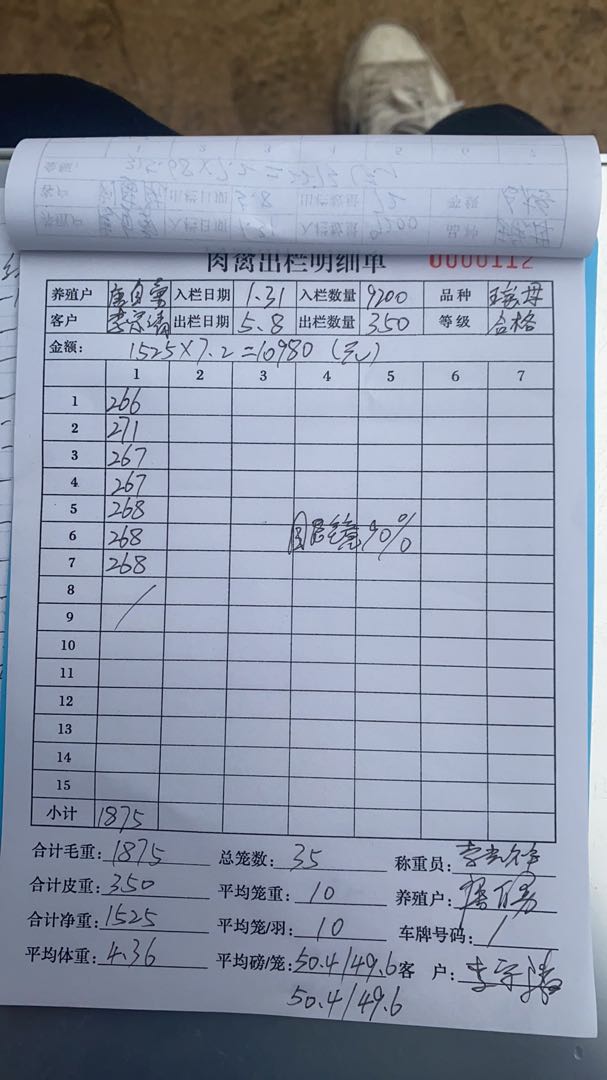 肉禽出栏明细单 0000112
养殖户 入栏日期 1.31 入栏数量 9200 品种
客户 出栏日期 5.8 出栏数量 350 等级 合格
金额: 1525×7.2=10980 (元)
1 2 3 4 5 6 7
1 266
2 271
3 267
4 267
5 268
6 268 90%
7 268
8
9
10
11
12
13
14
15
小计 1875
合计毛重: 1875 总笼数: 35 称重员:
合计皮重: 350 平均笼重: 10 养殖户:
合计净重: 1525 平均笼/羽: 10 车牌号码: /
平均体重: 4.36 平均磅/笼: 50.4/49.6 客 户:
50.4/49.6